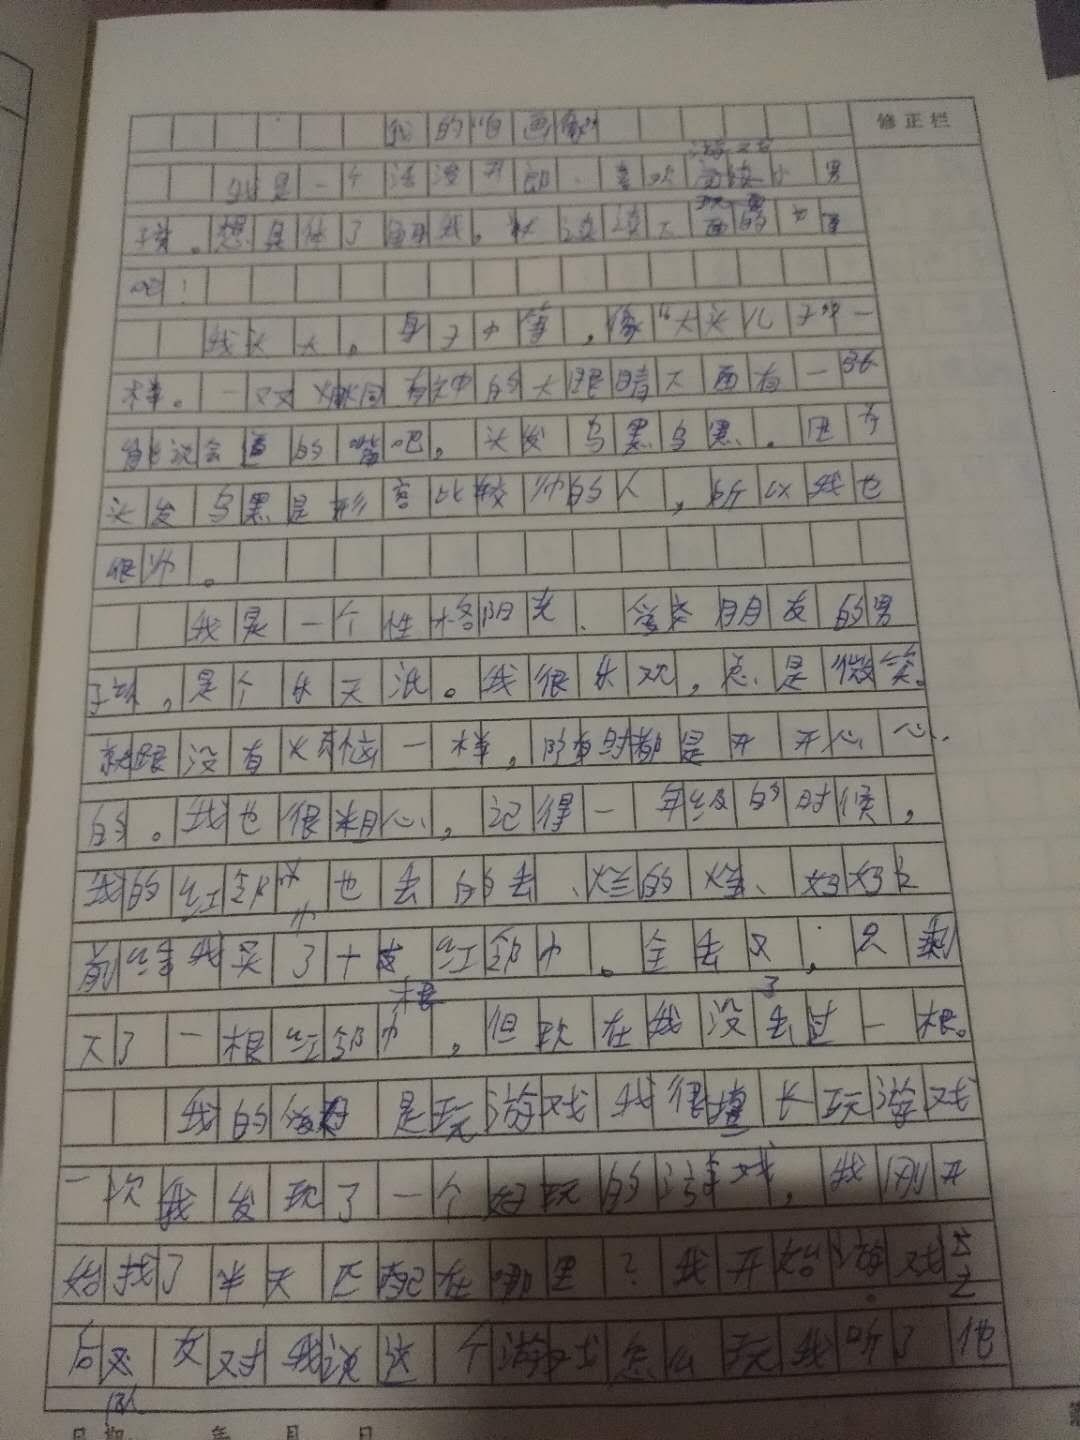 我的“自画像”
修正栏
我是一个活泼开朗、喜欢游戏小男
孩。想具体了解我，就读读下面的文章
吧！
我头大。身子中等，像“大头儿子”一
样。一双炯炯有神的大眼睛下面有一张
能说会道的嘴吧。头发乌黑乌黑。因为
头发乌黑是形容比较帅的人，所以我也
很帅。
我是一个性格阳光、爱交朋友的男
孩，是个乐天派。我很乐观，总是微笑。
就跟没有烦恼一样，所有时都是开开心心
的。我也很粗心，记得一年级的时候，
我的红领巾也丢的丢、烂的烂、妈妈之
前给我买了十根红领巾。全丢了，只剩
下了一根红领巾，但现在我没丢过一根。
我的爱好是玩游戏我很擅长玩游戏
一次我发现了一个好玩的游戏，我刚开
始找了半天匹配在哪里？我开始游戏了之
后队友对我说这个游戏怎么玩我听了他
日期 年 月 日